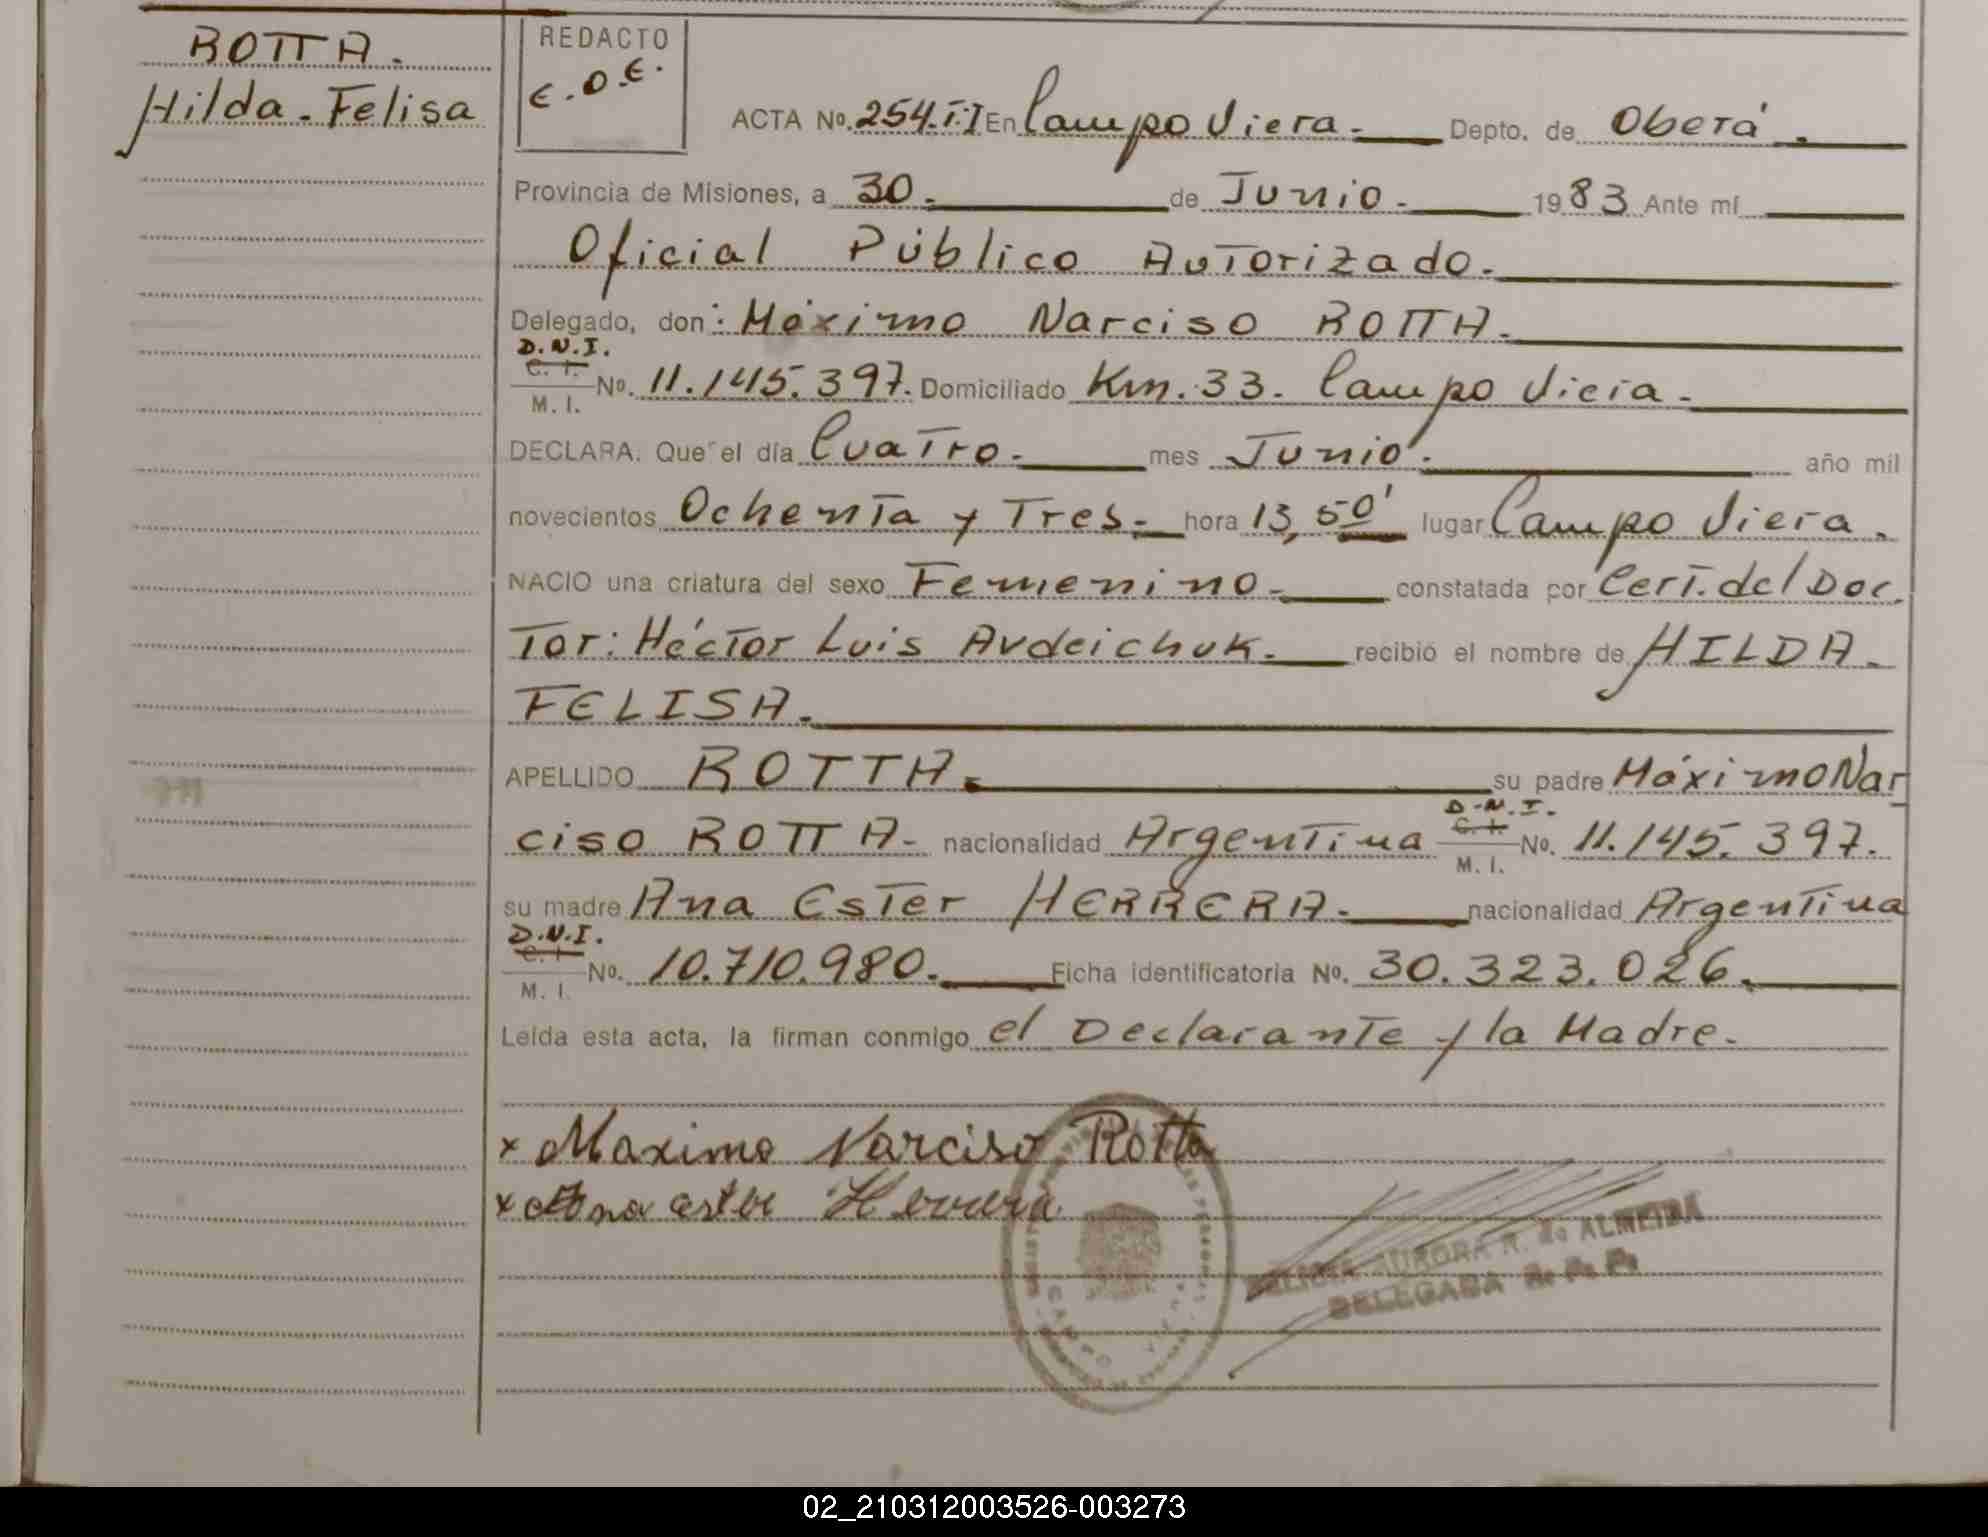 ROTTA.
Hilda-Felisa
REDACTO
E.O.E.
ACTA Nº. 254.T:I En Campo Viera.- Depto. de Oberá.
Provincia de Misiones, a 30.- de Junio.- 1983 Ante mí
Oficial Público Autorizado.-
Delegado, don: Máximo Narciso ROTTA.-
D.N.I.
C. I.
M. I. Nº. 11.145.397. Domiciliado Km. 33. Campo Viera.-
DECLARA. Que el día Cuatro.- mes Junio.- año mil
novecientos Ochenta y Tres.- hora 13,50' lugar Campo Viera.
NACIO una criatura del sexo Femenino.- constatada por Cert. del Doc
Tor: Héctor Luis Avdeichuk.- recibió el nombre de HILDA.-
FELISA.-
APELLIDO ROTTA.- su padre Máximo Nar
D.N.I.
ciso ROTTA- nacionalidad Argentina C. I. M. I. Nº. 11.145.397.
su madre Ana Ester HERRERA.- nacionalidad Argentina
D.N.I.
C. I.
M. I. Nº. 10.710.980.- Ficha identificatoria Nº. 30.323.026.-
Leída esta acta, la firman conmigo el Declarante y la Madre.-
x Maximo Narciso Rotta
x Ana ester Herrera
AURORA R. de ALMEIDA
DELEGADA R. P. P.
CAMPO VIERA
02_210312003526-003273